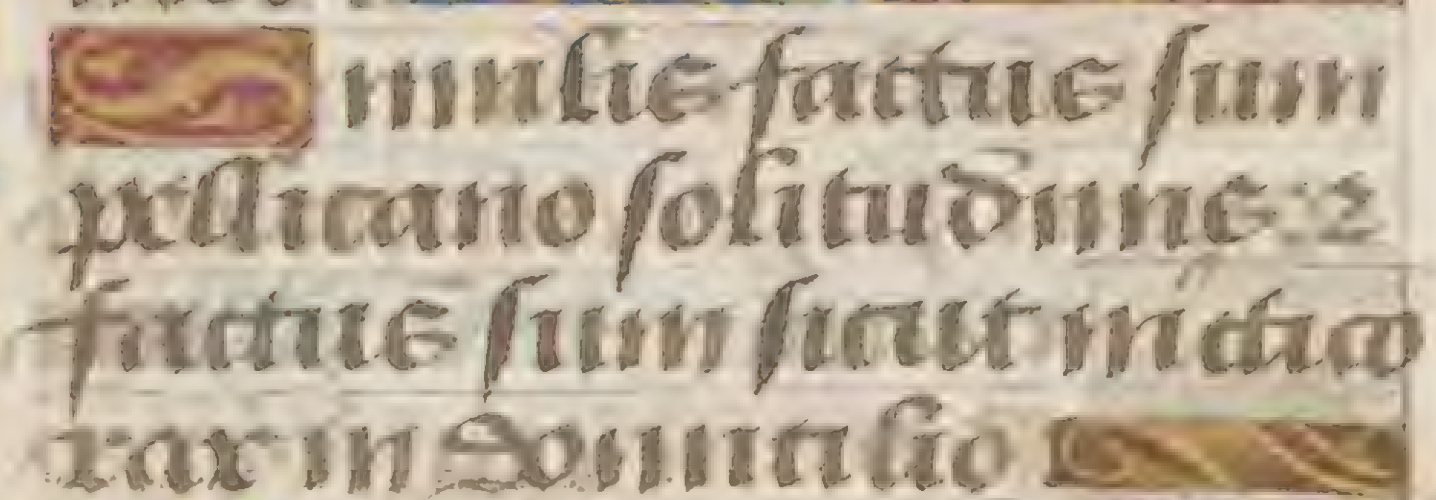 Similis factus sum
pellicano solitudinis: 2
factus sum sicut nictico
rax in domicilio